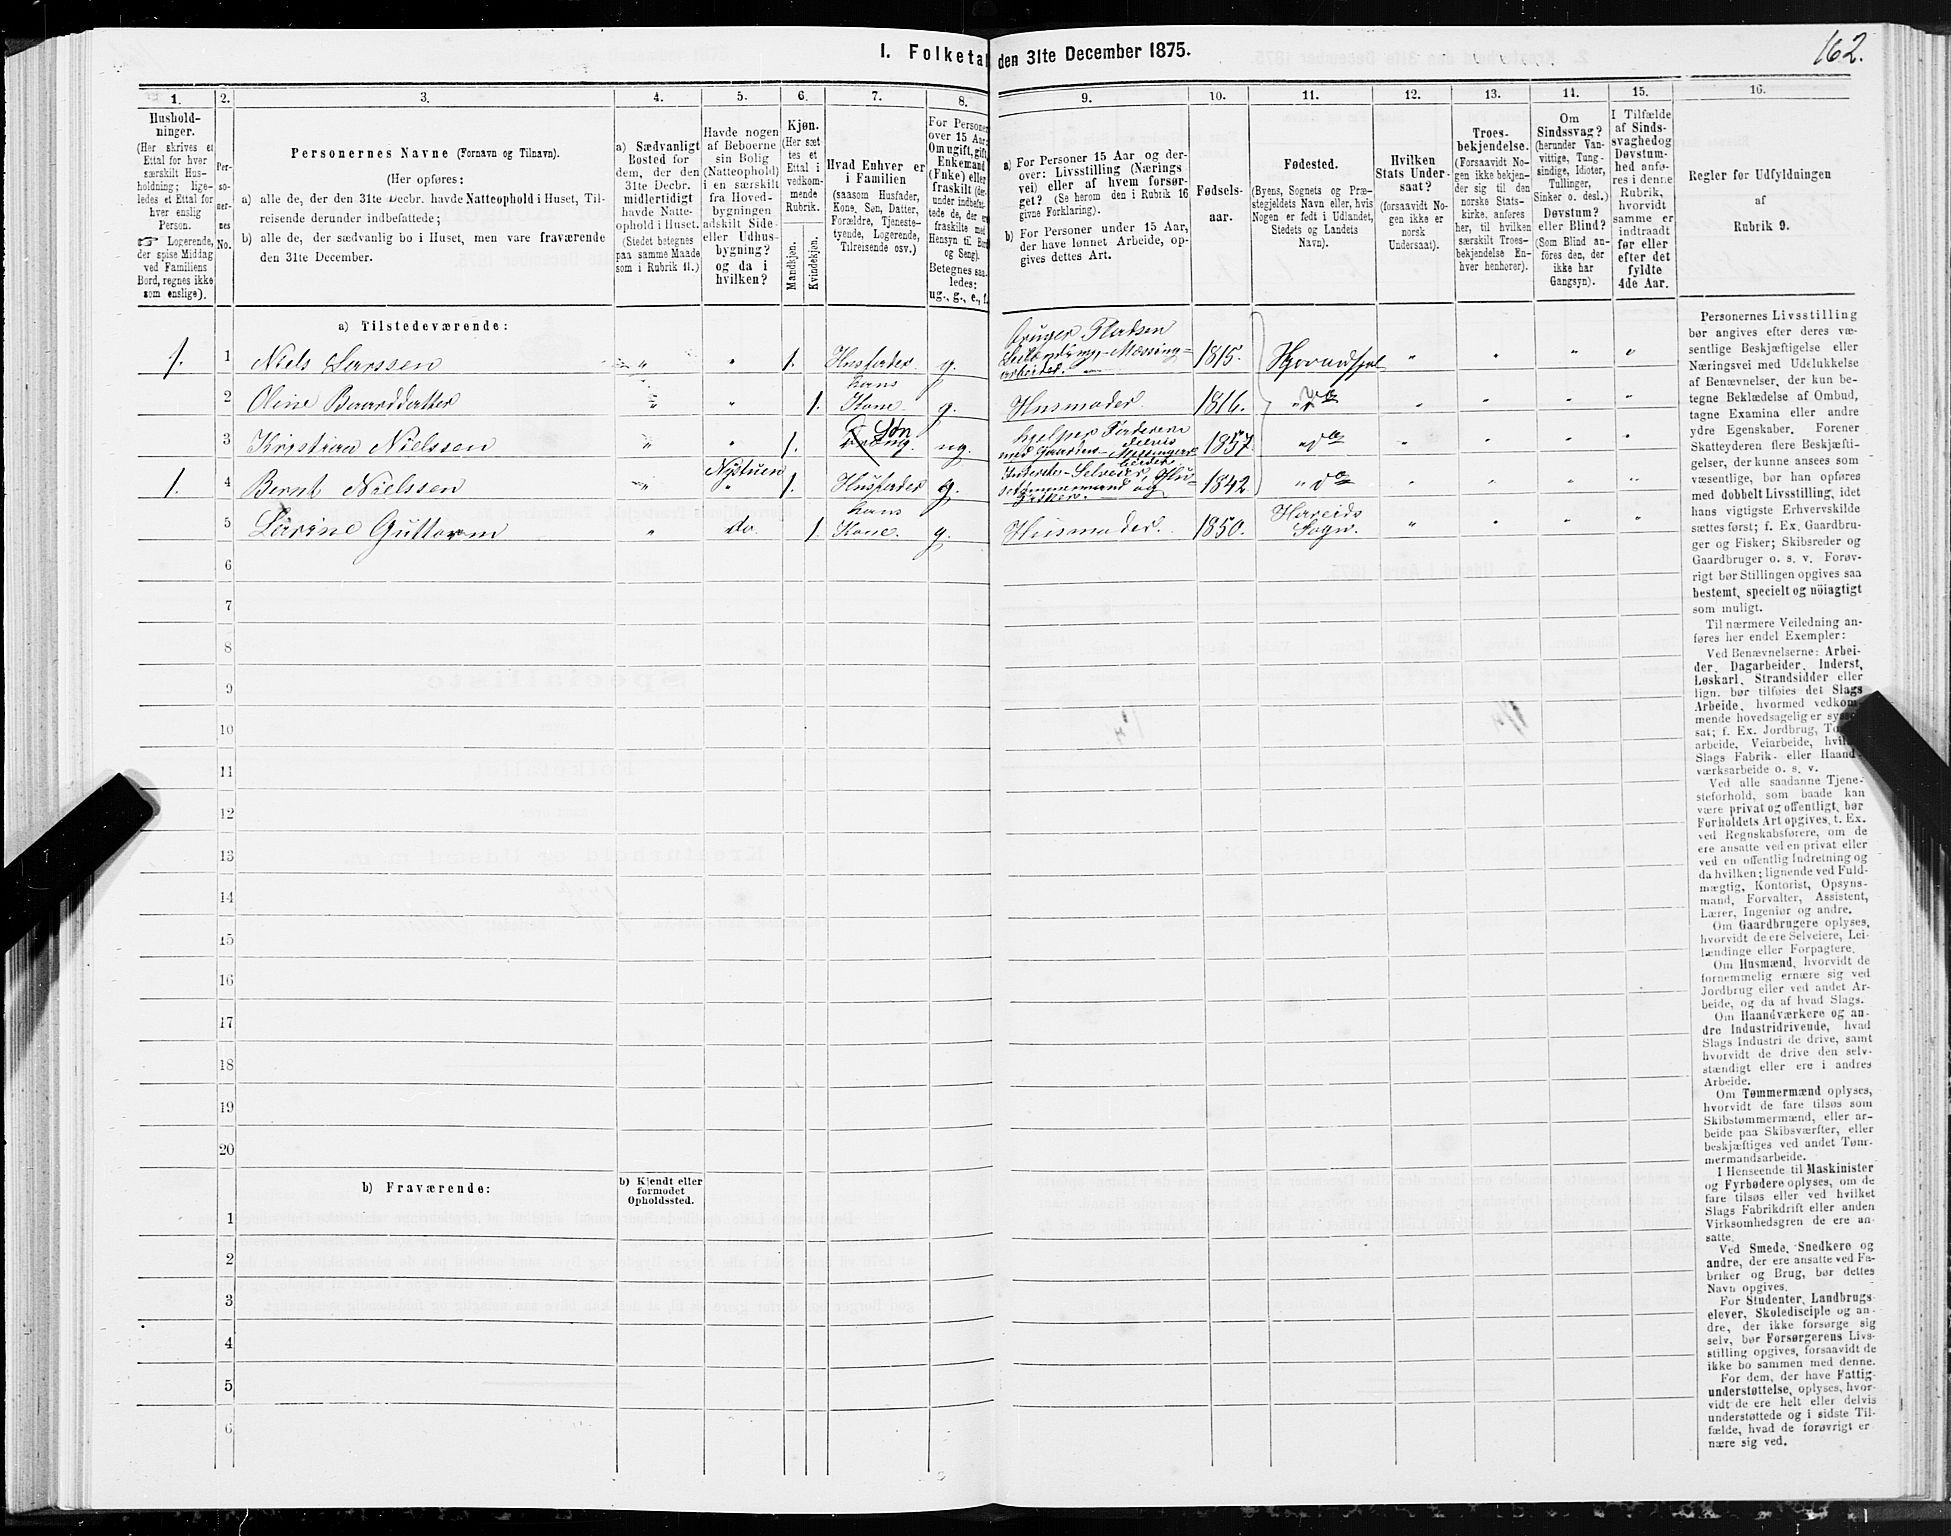 162.
I. Folketal den 31te December 1875.
1.
2.
3.
4.
5.
6.
7.
8.
9.
10.
11.
12.
13.
14.
15.
16.
Hushold-
ninger.
(Her skrives et
Ettal for hver
særskilt Hus-
holdning; lige-
ledes et Ettal for
hver enslig
Person.
☞ Logerende,
der spise Middag
ved Familiens
Bord, regnes ikke
som enslige).
Per-
so-
ner-
nes
No.
Personernes Navne (Fornavn og Tilnavn).
(Her opføres:
a) alle de, der den 31te Decbr. havde Natteophold i Huset, Til-
reisende derunder indbefattede;
b) alle de, der sædvanlig bo i Huset, men vare fraværende
den 31te December.
a) Sædvanligt
Bosted for
dem, der den
31te Decbr.
midlertidigt
havde Natte-
ophold i Huset.
(Stedet betegnes
paa samme Maade
som i Rubrik 11.)
Havde nogen
af Beboerne
sin Bolig
(Natteophold)
i en særskilt
fra Hoved-
bygningen
adskilt Side-
eller Udhus-
bygning?
og da i
hvilken?
Kjøn.
(Her sæt-
tes et
Ettal i
vedkom-
mende
Rubrik.
Mandkjøn.
Kvindekjøn.
Hvad Enhver er
i Familien
(saasom Husfader,
Kone, Søn, Datter,
Forældre, Tjeneste-
tyende, Logerende,
Tilreisende osv.)
For Personer
over 15 Aar:
Om ugift, gift,
Enkemand
(Enke) eller
fraskilt (der-
under indbefat-
tede de, der ere
fraskilte med
Hensyn til Bord
og Seng).
Betegnes saa-
ledes:
ug., g., e., f.
a) For Personer 15 Aar og der-
over: Livsstilling (Nærings
vei) eller af hvem forsør-
get? (Se herom den i Rubrik 16
givne Forklaring).
b) For Personer under 15 Aar,
der have lønnet Arbeide, op-
gives dettes Art.
Fødsels-
aar.
Fødested.
(Byens, Sognets og Præ-
stegjeldets Navn eller, hvis
Nogen er født i Udlandet,
Stedets og Landets
Navn).
Hvilken
Stats Under-
saat?
(forsaavidt No-
gen ikke er
norsk
Undersaat).
Troes-
bekjendelse.
(Forsaavidt No-
gen ikke bekjen-
der sig til den
norske Stats-
kirke, anføres
her, til hvilken
særskilt Troes-
bekjendelse En-
hver henhører).
Om
Sindssvag?
(herunder Van-
vittige, Tung-
sindige, Idioter,
Tullinger,
Sinker o. desl.)
Døvstum?
eller Blind?
(Som Blind an-
føres den, der
ikke har
Gangsyn).
I Tilfælde
af Sinds-
svaghed og
Døvstum-
hed anfø-
res i denne
Rubrik,
hvorvidt
samme er
indtraadt
før eller
efter det
fyldte
4de Aar.
Regler for Udfyldningen
af
Rubrik 9.
a) Tilstedeværende:
1. 1 Niels Larssen " " 1. Husfader g. 1815. " " " "
2 Oline Baarddatter " " 1. hans Kone. g. Husmoder. 1816. " do " " " "
3 Kristian Nielssen " " 1. Søn ug. hjelper Faderen med Gaarden 1857. " do " " " "
1. 4 Bernt Nielssen " Nystuen 1. Husfader g. 1842. " do " " " "
5 Larine Guttorm " do. 1. hans Kone. g. Husmoder. 1850. Hareids Sogn. " " " "
6
7
8
9
10
11
12
13
14
15
16
17
18
19
20
b) Fraværende:
b) Kjendt eller
formodet
Opholdssted.
1
2
3
4
5
6
Personernes Livsstilling
bør angives efter deres væ-
sentlige Beskjæftigelse eller
Næringsvei med Udelukkelse
af Benævnelser, der kun be-
tegne Beklædelse af Ombud,
tagne Examina eller andre
ydre Egenskaber. Forener
Skatteyderen flere Beskjæfti-
gelser, der kunne ansees som
væsentlige, bør han opføres
med dobbelt Livsstilling, idet
hans vigtigste Erhvervskilde
sættes først; f. Ex. Gaardbru-
ger og Fisker; Skibsreder og
Gaardbruger o. s. v. Forøv-
rigt bør Stillingen opgives saa
bestemt, specielt og nöiagtigt
som muligt.
Til nærmere Veiledning an-
føres her endel Exempler:
Ved Benævnelserne: Arbei-
der, Dagarbeider, Inderst,
Løskarl, Strandsidder eller
lign. bør tilføies det Slags
Arbeide, hvormed vedkom-
mende hovedsagelig er syssel-
sat; f. Ex. Jordbrug, Tom-
arbeide, Veiarbeide, hvilket
Slags Fabrik- eller Haand-
værksarbeide o. s. v.
Ved alle saadanne Tjene-
steforhold, som baade kan
være privat og offentligt, bør
Forholdets Art opgives, t. Ex.
ved Regnskabsførere, om de
ere ansatte ved en privat eller
ved en offentlig Indretning og
da hvilken; lignende ved Fuld-
mægtig, Kontorist, Opsyns-
mand, Forvalter, Assistent,
Lærer, Ingeniør og andre.
Om Gaardbrugere oplyses,
hvorvidt de ere Selveiere, Lei-
lændinge eller Forpagtere.
Om Husmænd, hvorvidt de
fornemmelig ernære sig ved
Jordbrug eller ved andet Ar-
beide, og da af hvad Slags.
Om Haandværkere og an-
dre Industridrivende, hvad
Slags Industri de drive, samt
hvorvidt de drive den selv-
stændigt eller ere i andres
Arbeide.
Om Tømmermænd oplyses,
hvorvidt de fare tilsøs som
Skibstømmermænd, eller ar-
beide paa Skibsværfter, eller
beskjæftiges ved andet Tøm-
mermandsarbeide.
I Henseende til Maskinister
og Fyrbødere oplyses, om de
fare tilsøs eller ved hvilket
Slags Fabrikdrift eller anden
Virksomhedsgren de ere an-
satte.
Ved Smede, Snedkere og
andre, der ere ansatte ved Fa-
briker og Brug, bør dettes
Navn opgives.
For Studenter, Landbrugs-
elever, Skoledisciple og an-
dre, der ikke forsørge sig
selv, bør Forsørgerens Livs-
stilling opgives, forsaavidt de
ikke bo sammen med denne.
For dem, der have Fattig-
understøttelse, oplyses, hvor-
vidt de ere helt eller delvis
understøttede og i sidste Til-
fælde, hvad de forøvrigt er-
nære sig ved.